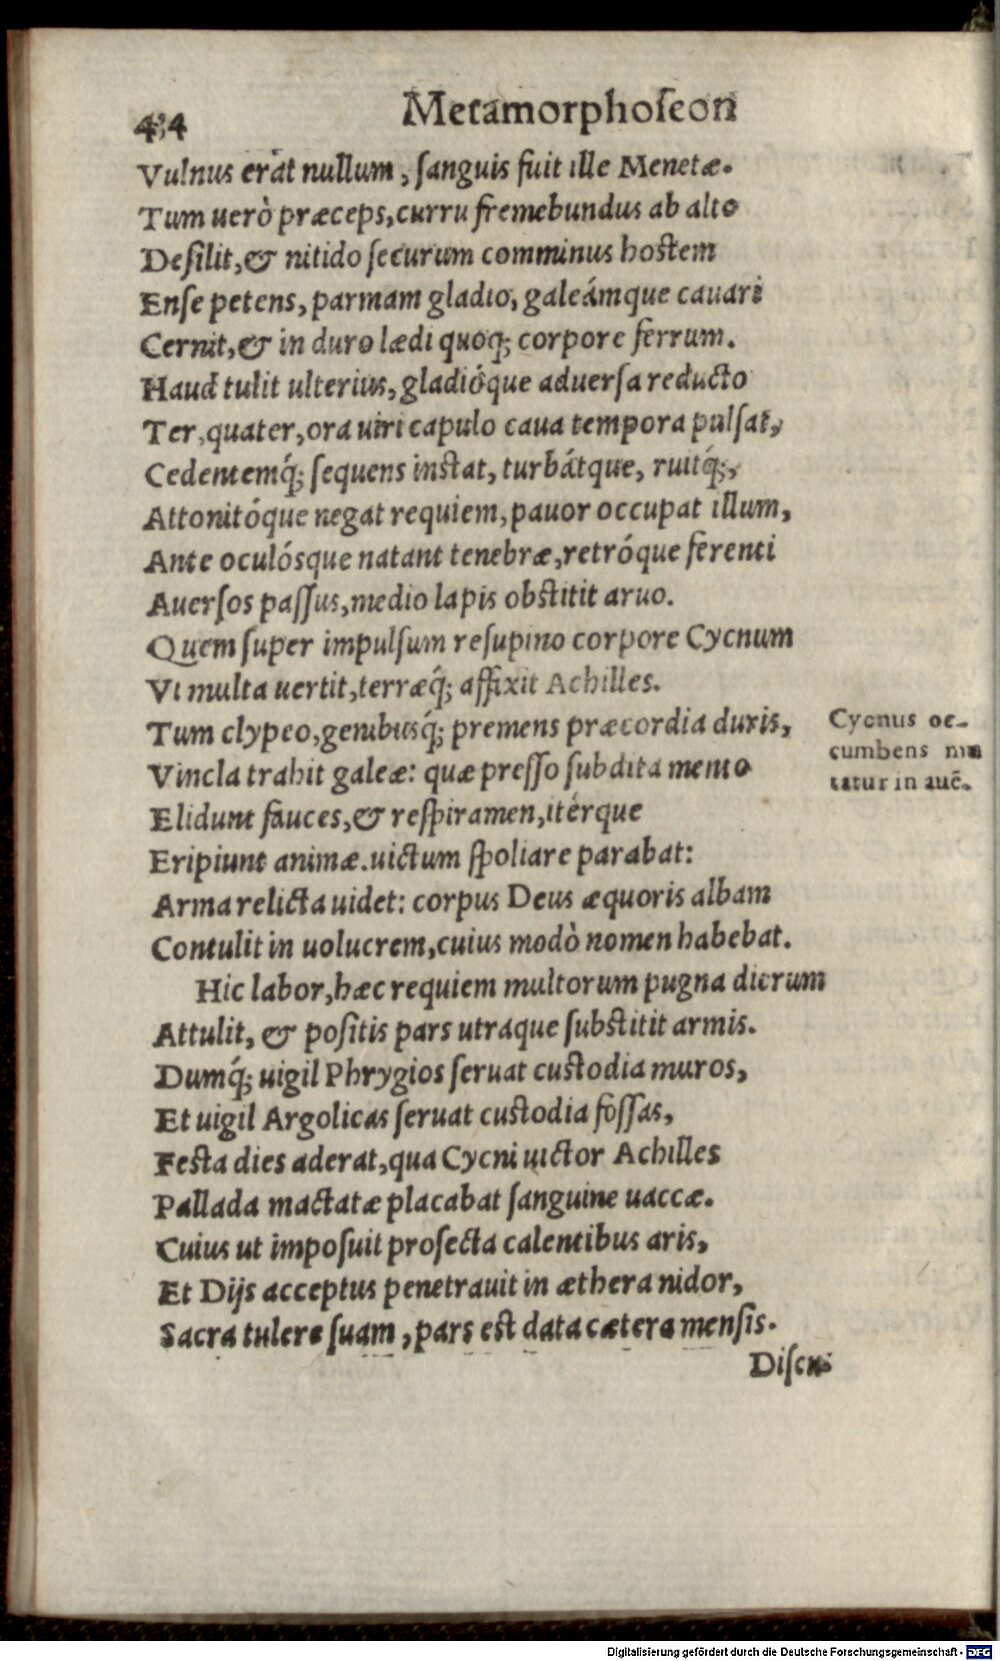 434 Metamorphoſeon
Vulnus erat nullum, ſanguis fuit ille Menetæ.
Tum uerò præceps, curru fremebundus ab alto
Deſilit, & nitido ſecurum comminus hoſtem
Enſe petens, parmam gladio, galeámque cauari
Cernit, & in duro lædi quoq; corpore ferrum.
Haud tulit ulterius, gladióque aduerſa reducto
Ter, quater, ora uiri capulo caua tempora pulſat,
Cedentemq́; ſequens inſtat, turbátque, ruitq́;,
Attonitóque negat requiem, pauor occupat illum,
Ante oculósque natant tenebræ, retróque ferenti
Auerſos paſſus, medio lapis obſtitit aruo.
Quem ſuper impulſum reſupino corpore Cycnum
Vi multa uertit, terræq́; affixit Achilles.
Tum clypeo, genibusq́; premens præcordia duris,
Vincla trahit galeæ: quæ preſſo ſubdita mento
Elidunt fauces, & reſpiramen, itérque
Eripiunt animæ. uictum ſpoliare parabat:
Arma relicta uidet: corpus Deus æquoris albam
Contulit in uolucrem, cuius modò nomen habebat.
Hic labor, hæc requiem multorum pugna dierum
Attulit, & poſitis pars utraque ſubſtitit armis.
Dumq́; uigil Phrygios ſeruat cuſtodia muros,
Et uigil Argolicas ſeruat cuſtodia foſſas,
Feſta dies aderat, qua Cycni uictor Achilles
Pallada mactatæ placabat ſanguine uaccæ.
Cuius ut impoſuit proſecta calentibus aris,
Et Dijs acceptus penetrauit in æthera nidor,
Sacra tulere ſuam, pars eſt data cætera menſis.
Diſcu-
Cycnus oc-
cumbens mu
tatur in auē.
Digitalisierung gefördert durch die Deutsche Forschungsgemeinschaft - DFG